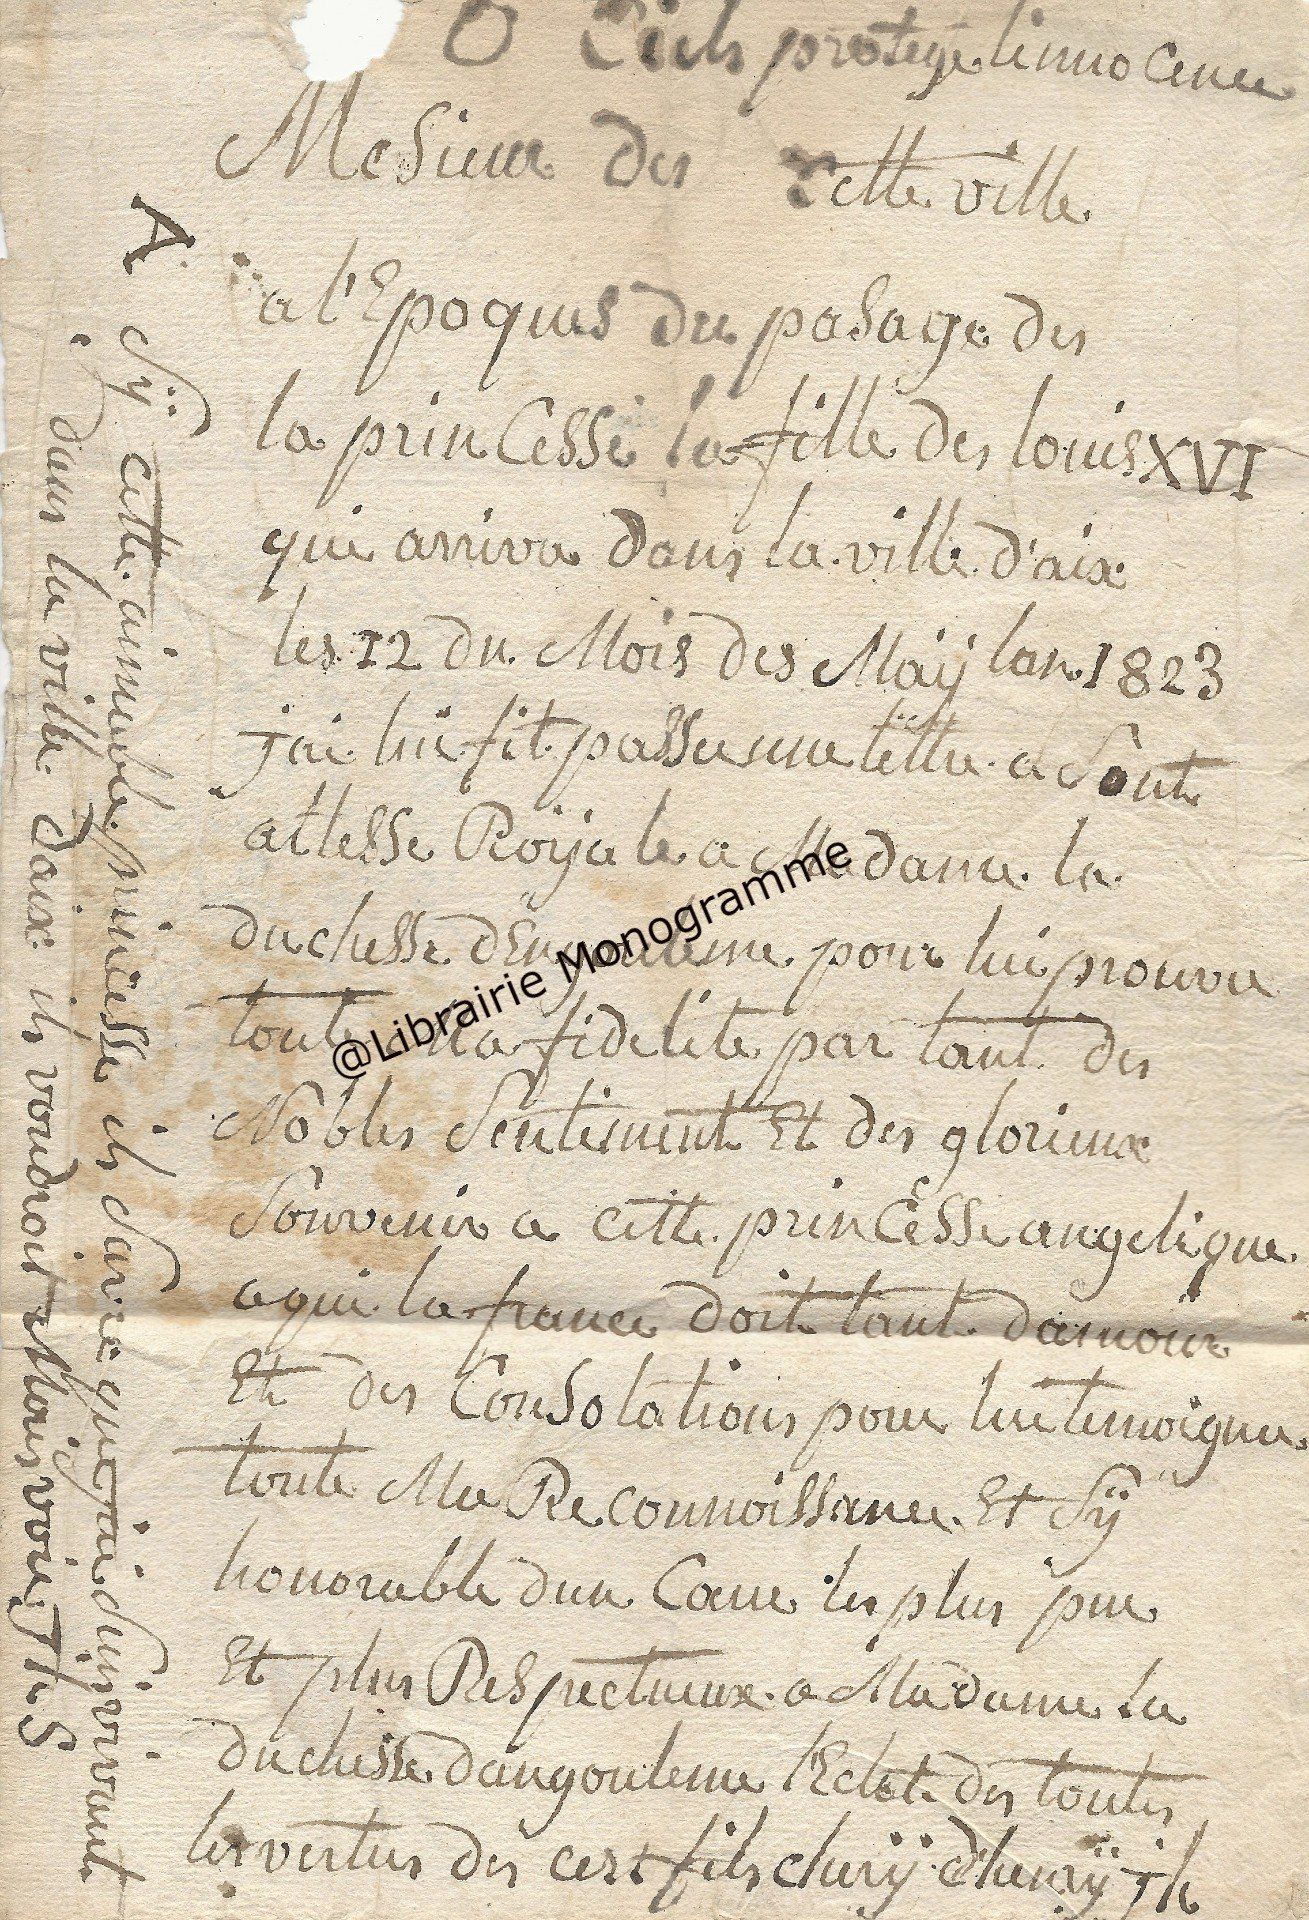 O Ciels protege linnocence
Mesieur des cette ville
a l'Epoques du pasage des
la prinCesse la fille des louis XVI
qui arriva dans la ville d'aix
les 12 du Mois des Maÿ lan 1823
jai lui fit passer une lettre a Sont
altesse Roÿale a Madame la
duchesse dEngouleme pour lui prouver
toute ma fidelite par tant des
Nobles Sentiment Et des glorieux
Souvenir a cette prinCesse angelique
a qui la france doit tant damour
Et des Consolations pour lui temoigner
toute Ma Reconnoissance Et Sÿ
honorable dun Cœur les plus pur
Et plus Respectueux a Madame la
duchesse dangouleme l'Eclat des toutes
les vertus des ces fils cherÿ d'henrÿ
A Sÿ cette aimable princesse ils Sar ce que jai Suis vivant
dans la ville daix ils voudroit Mais voir Th. S
@Librairie Monogramme